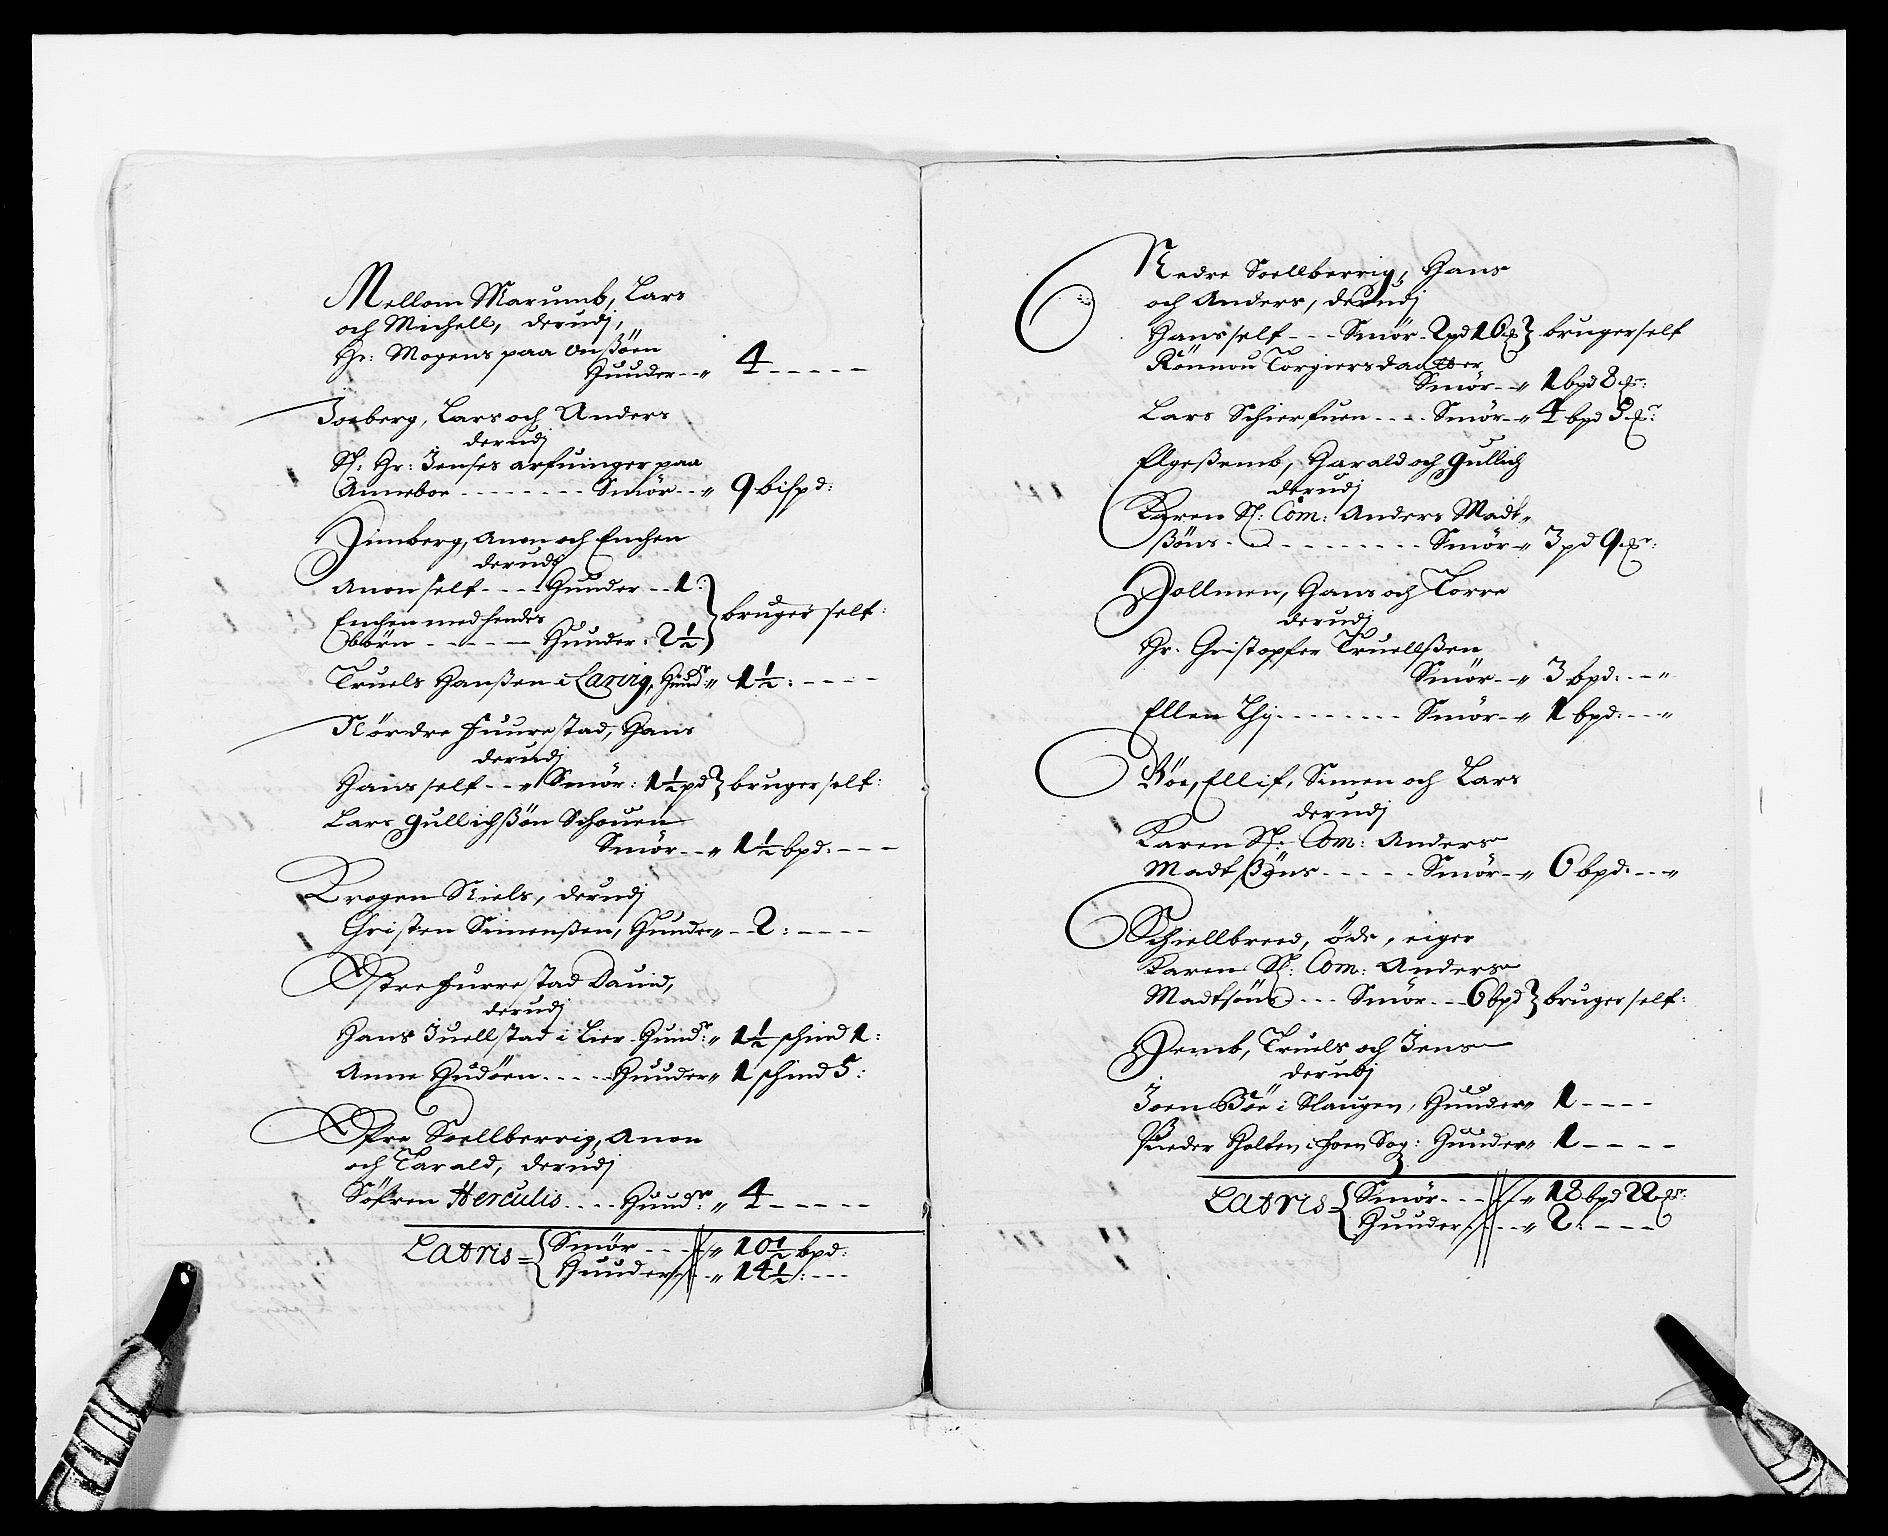 Mellom Marumb, Lars
och Michell, derudj,
Hr: Mogens paa Onßöen
Huuder - - „ 4 - - - - -
Joeberg, Lars och Anders
derudj
Sl: Hr: Jenses arfuinger paa
Anneboe - - - - - - - - Smör - - „ 9 bispd:
Himberg, Anon och Enchen
derudj
Anon self - - - - Huuder - - 1:
Enchen med hendes
börn - - - - - Huuder: 2½ } bruger self:
Truels Hanßen i Larvig, Huudr „ 1½: - - - -
Nördre Fuurestad, Hans
derudj
Hans self - - „ Smör: 1½ pd } bruger self:
Lars Gullichßön Schouen
Smör - - „ 1½ bpd: - - -
Krogen Niels, derudj
Christen Simenßen, Huuder „ - - 2: - - - -
Östre Furrestad Dauid,
derudj
Hans Juellstad i Lier Huudr: „ 1½ schind 1:
Anne Hudöen - - - - Huuder „ 1 schind 5:
Öfre Soellberrig, Anon
och Tarald, derudj
Söfren Herculis - - - - Huudr: „ 4 - - - - -
Latris = { Smör - - - - „ 10½ bpd:
Huuder - - - „ 14½: - - -
Nedre Soellberrig, Hans
och Anders, derudj
Hans self - - - Smör - 2 pd 16 } bruger self
Rönnou Torgiersdaatter
Smör - - „ 1 bpd 8
Lars Schierfuen - - - - Smör - - „ 4 bpd 5
Elgeßemb, Harald och Gullich
derudj
Karen Sl: Com: Anders Madt„
ßöns - - - - - - - - - Smör - „ 3 pd 9
Hollmen, Hans och Torre
derudj
Hr. Christopfer Truelsßen
Smör - - „ 3 bpd: - - „
Ellen Thj - - - - - - - - Smör - - „ 1 bpd: - - „
Böe, Ellif, Simen och Lars
derudj
Karen Sl: Com: Anders
Madtßöns - - - - - Smör - - „ 6 bpd: - - „
Schiellbreed, öde, eiger
Karen Sl: Com: Anders
Madtsöns - - - Smör - - 6 bpd } bruger self:
Hemb, Truels och Jens
derudj
Joen Böe i Slaugen, Huuder „ 1 - - - -
Peder Holten i Foen Sog: Huuder „ 1 - - - -
Latris = { Smör - - - „ 18 bpd 22
Huuder - - - „ 2: - - - -